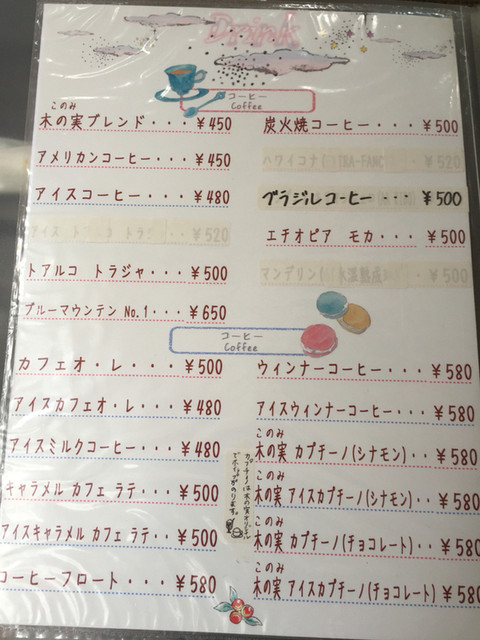 Drink
コーヒー
Coffee
このみ
木の実ブレンド・・・¥450
アメリカンコーヒー・・・¥450
アイスコーヒー・・・¥480
¥520
トアルコ トラジャ・・・¥500
ブルーマウンテン No.1・・・¥650
炭火焼コーヒー・・・¥500
ハワイコナ( ¥520
ブラジルコーヒー・・・¥500
エチオピア モカ・・・¥500
マンデリン( ¥500
コーヒー
Coffee
カフェオ・レ・・・¥500
アイスカフェオ・レ・・・¥480
アイスミルクコーヒー・・・¥480
キャラメル カフェ ラテ・・・¥500
アイスキャラメル カフェ ラテ・・¥500
コーヒーフロート・・・¥580
カプチーノは木の実オリジナル
ウィンナーコーヒー・・・¥580
アイスウィンナーコーヒー・・・¥580
このみ
木の実 カプチーノ(シナモン)・・¥580
このみ
木の実 アイスカプチーノ(シナモン)・・¥580
このみ
木の実 カプチーノ(チョコレート)・・¥580
このみ
木の実 アイスカプチーノ(チョコレート)¥580